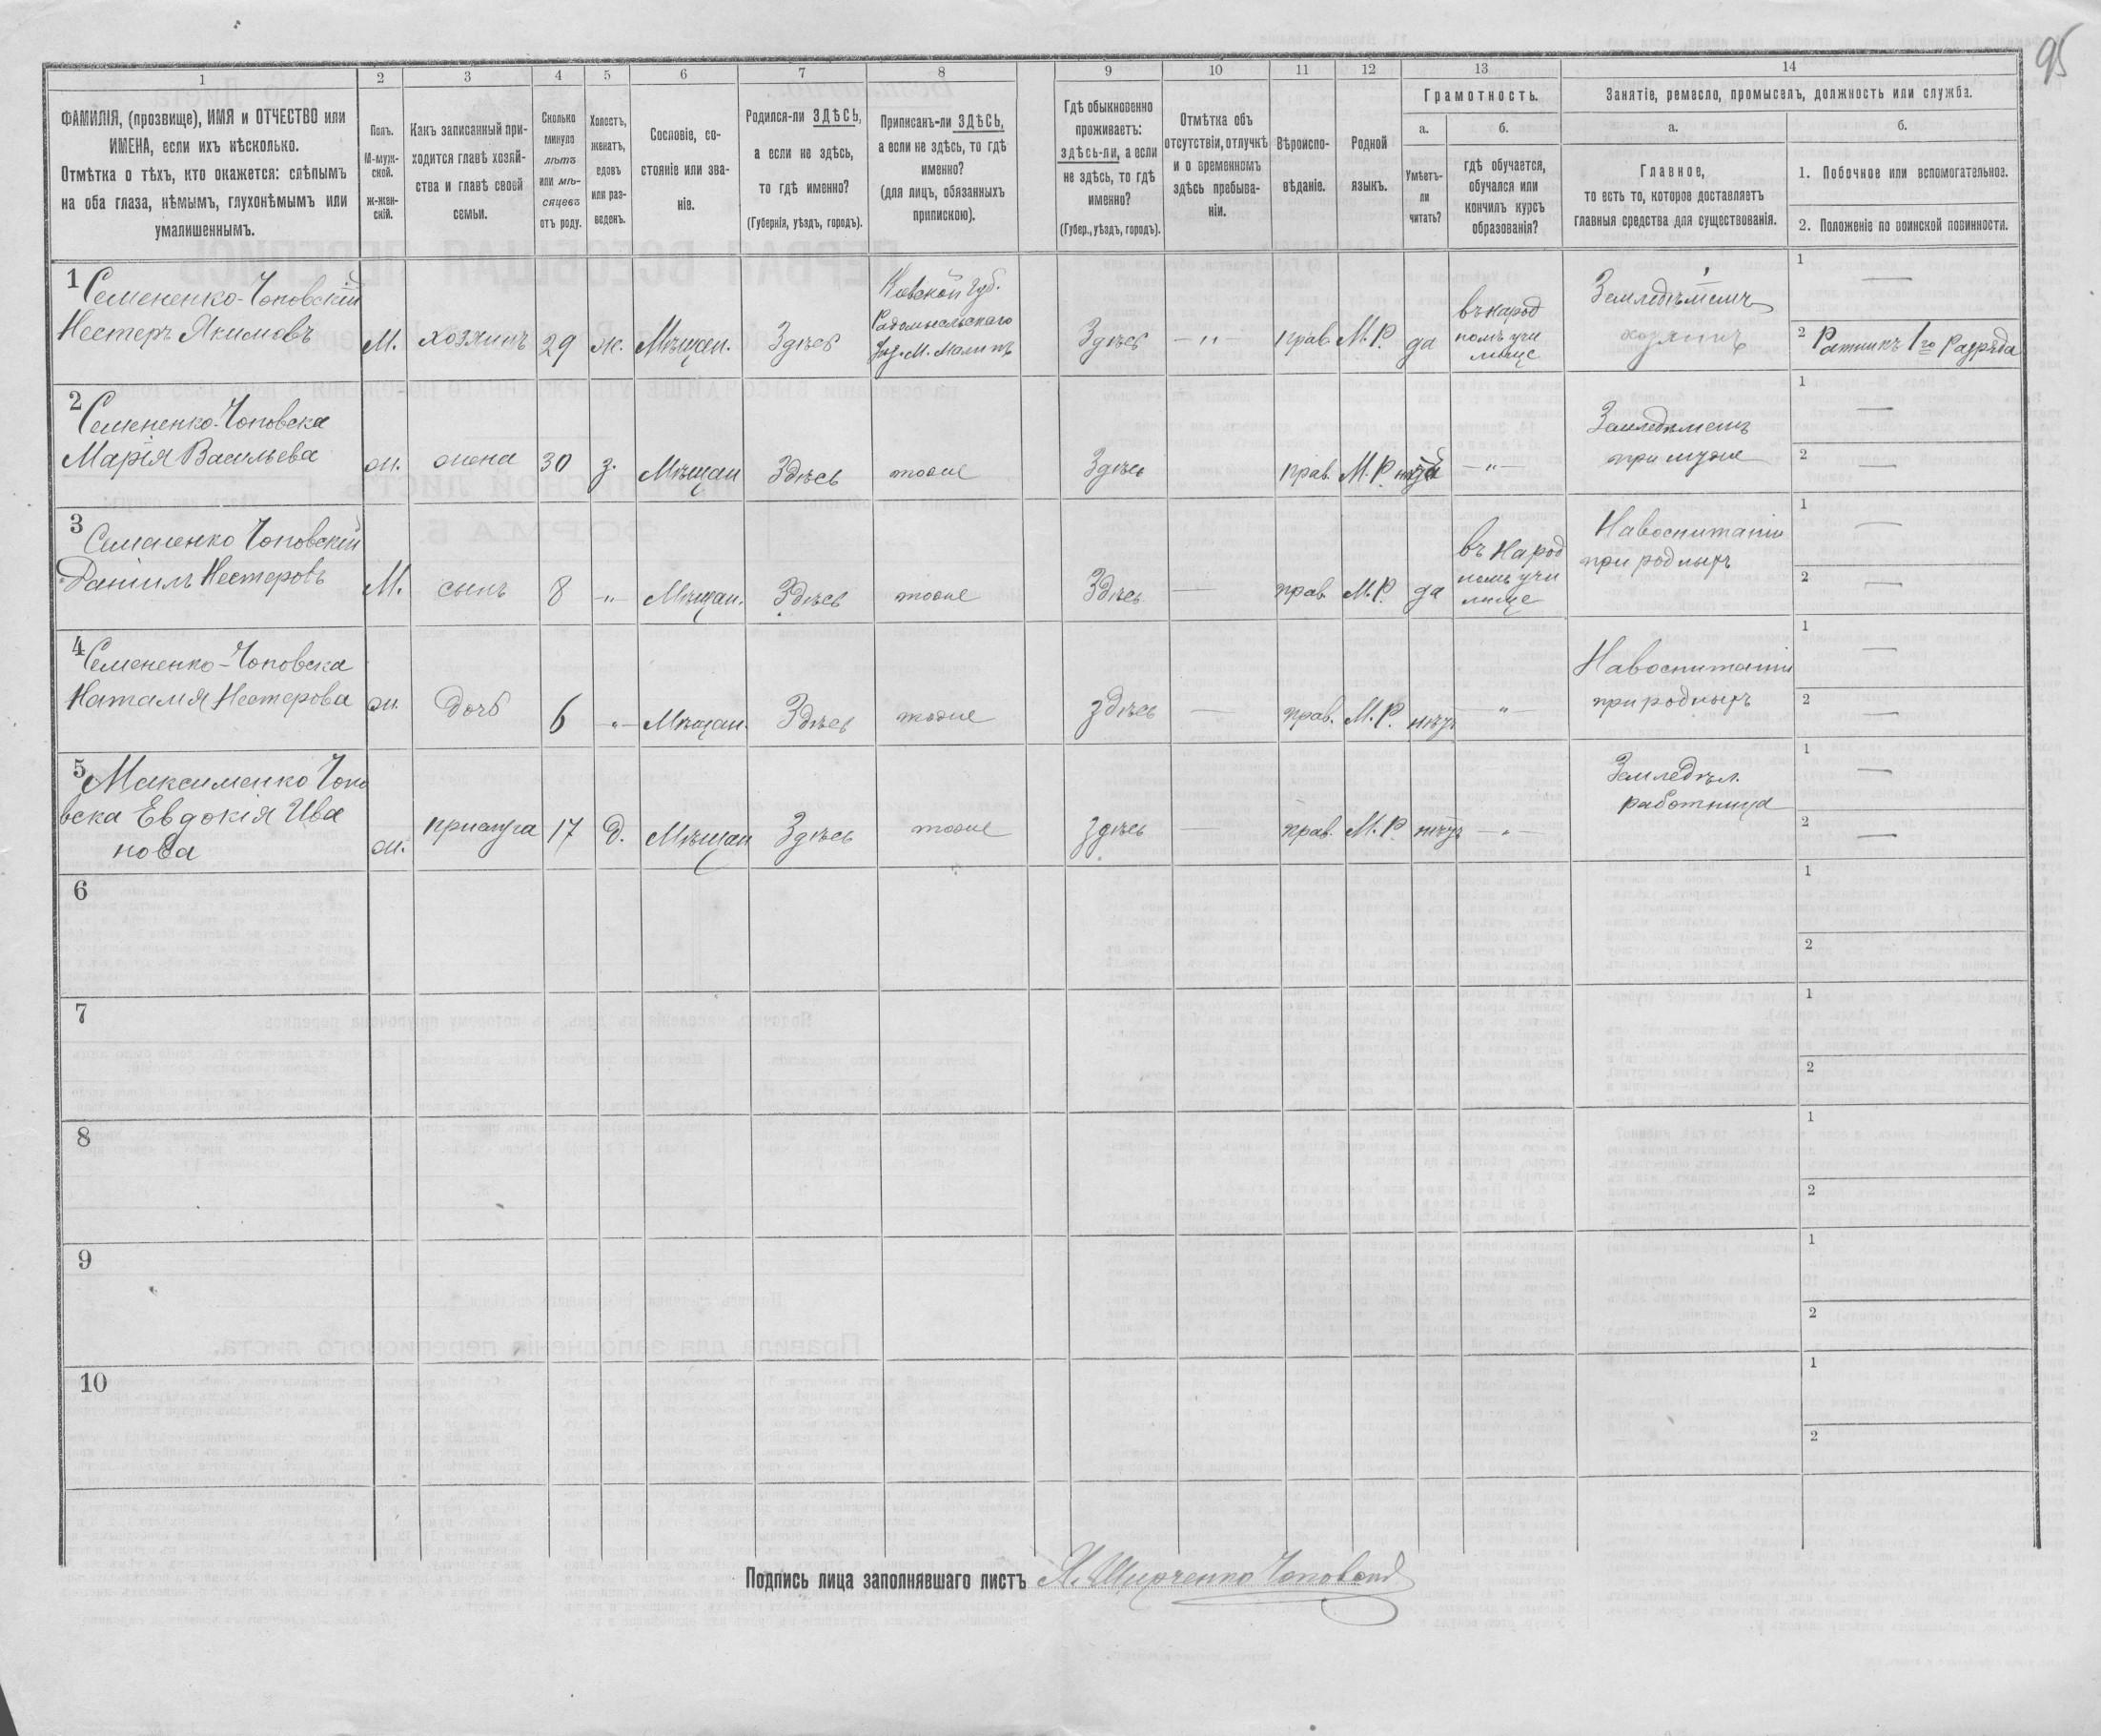 95
1 2 3 4 5 6 7 8 9 10 11 12 13 14
ФАМИЛІЯ, (прозвище), ИМЯ и ОТЧЕСТВО или
ИМЕНА, если ихъ нѣсколько.
Отмѣтка о тѣхъ, кто окажется: слѣпымъ
на оба глаза, нѣмымъ, глухонѣмымъ или
умалишеннымъ.
Полъ.
М-муж-
ской.
Ж-жен-
скій.
Какъ записанный при-
ходится главѣ хозяй-
ства и главѣ своей
семьи.
Сколько
минуло
лѣтъ
или мѣ-
сяцевъ
отъ роду.
Холостъ,
женатъ,
вдовъ
или раз-
веденъ.
Сословіе, со-
стояніе или зва-
ніе.
Родился-ли ЗДѢСЬ,
а если не здѣсь,
то гдѣ именно?
(Губернія, уѣздъ, городъ).
Приписанъ-ли ЗДѢСЬ,
а если не здѣсь, то гдѣ
именно?
(для лицъ, обязанныхъ
припискою).
Гдѣ обыкновенно
проживаетъ:
здѣсь-ли, а если
не здѣсь, то гдѣ
именно?
(Губер., уѣздъ, городъ).
Отмѣтка объ
отсутствіи, отлучкѣ
и о временномъ
здѣсь пребыва-
ніи.
Вѣроиспо-
вѣданіе.
Родной
языкъ.
Грамотность.
а.
Умѣетъ-
ли
читать?
б.
гдѣ обучается,
обучался или
кончилъ курсъ
образованія?
Занятіе, ремесло, промыселъ, должность или служба.
а.
Главное,
то есть то, которое доставляетъ
главныя средства для существованія.
б.
1. Побочное или вспомогательное.
2. Положеніе по воинской повинности.
1 Семененко-Чоповскій
Нестеръ Якимовъ
М.
хозяинъ
29
ж.
Мѣщан.
Здѣсь
Кіевской губ.
Радомысльскаго
уѣз. М. Малинъ
Здѣсь
—"—
прав.
М.Р.
да
въ народ
номъ учи
лище
Земледѣлецъ
хозяинъ
1 —
2 Ратникъ 1го разряда
2 Семененко-Чоповска
Марія Васильева
ж.
жена
30
з.
Мѣщан
Здѣсь
тоже
Здѣсь
прав.
М.Р.
—"—
Земледѣлецъ
при муже
1 —
2 —
3 Семененко Чоповскій
Даніилъ Нестеровъ
М.
сынъ
8
-"-
Мѣщан.
Здѣсь
тоже
Здѣсь
—
прав.
М.Р.
да
въ народ
номъ учи
лище
На воспитаніи
при родныхъ
1 —
2 —
4 Семененко-Чоповска
Наталія Нестерова
ж.
дочь
6
-"-
Мѣщан.
Здѣсь
тоже
здѣсь
—
прав.
М.Р.
нѣтъ
—"—
На воспитаніи
при родныхъ
1 —
2 —
5 Максименко Чопо
вска Евдокія Ива
нова
ж.
прислуга
17
д.
Мѣщан
Здѣсь
тоже
здѣсь
—
прав.
М.Р.
нѣтъ
—"—
Земледѣл.
работница
1 —
2 —
6
1
2
7
1
2
8
1
2
9
1
2
10
1
2
Подпись лица заполнявшаго листъ